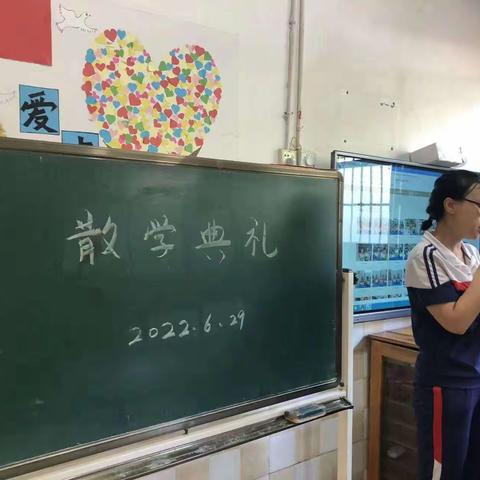 爱
散学典礼
2022.6.29